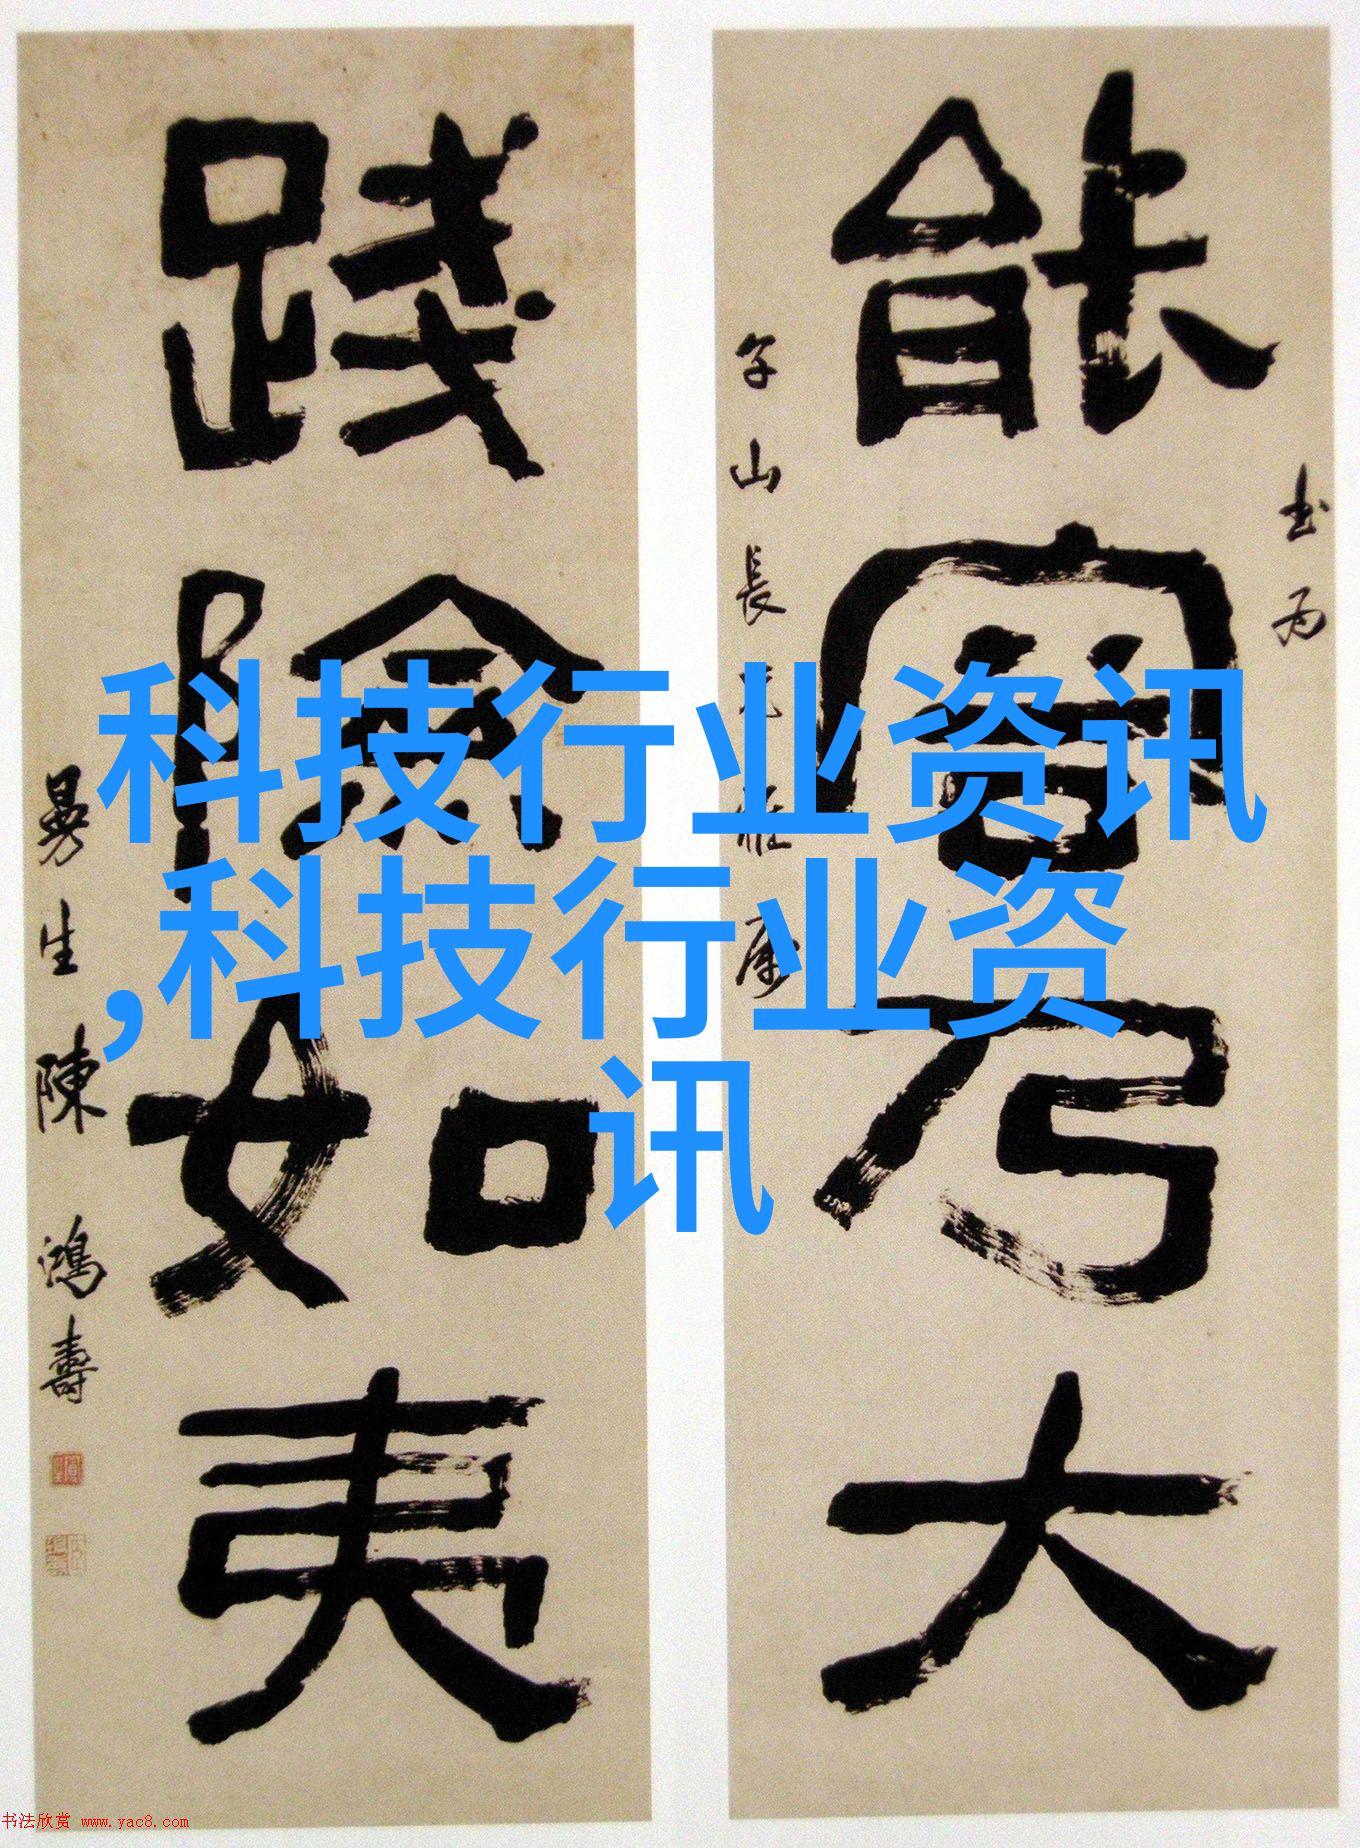 能宦乃大
書為
子山長兄雅屬
踐險如夷
曼生陳鴻壽
科技行业资讯
,科技行业资
讯
书法欣赏 www.yac8.com